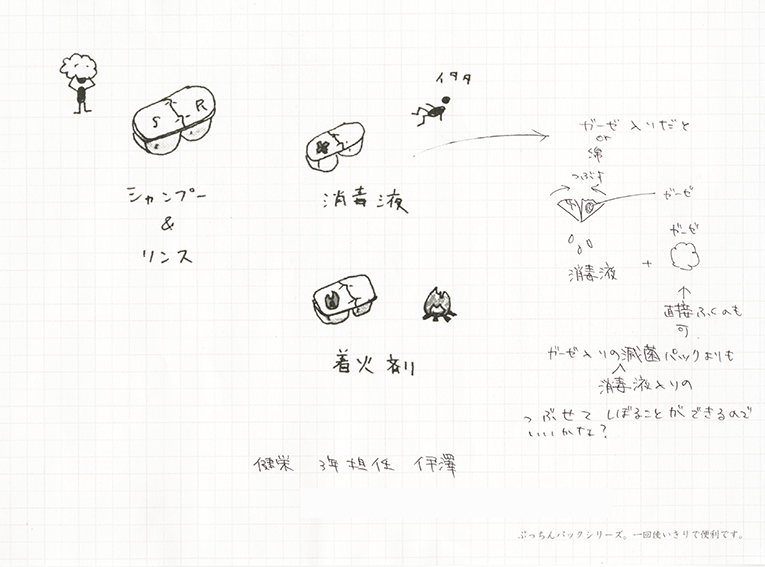 S R
イタタ
シャンプー
&
リンス
消毒液
着火剤
ガーゼ入りだと
or
綿
つぶす
ガーゼ
ガーゼ
消毒液 +
↑
直接ふくのも
可
ガーゼ入りの滅菌パックよりも
消毒液入りの
つぶせて しぼることができるので
いいかな?
健栄 3年担任 伊澤
ぷっちんパックシリーズ。一回使いきりで便利です。